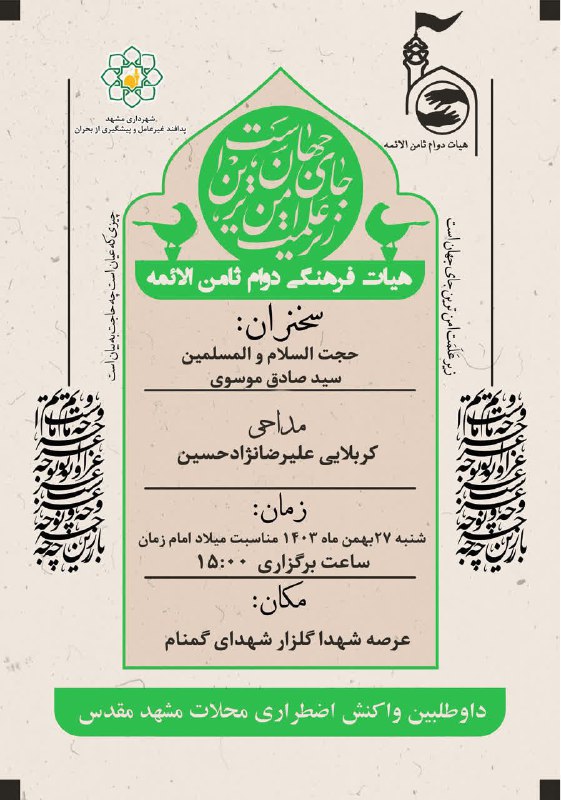 هیات دوام ثامن الائمه
شهرداری مشهد
پدافند غیرعامل و پیشگیری از بحران
زیر علمت امن ترین جای جهان است
زیر عَلَمَت امن ترین جای جهان است
چیزی که عیان است چه حاجت به بیان است
هیات فرهنگی دوام ثامن الائمه
سخنران:
حجت السلام و المسلمین
سید صادق موسوی
مداحی
کربلایی علیرضانژادحسین
زمان:
شنبه ۲۷بهمن ماه ۱۴۰۳ مناسبت میلاد امام زمان
ساعت برگزاری ۱۵:۰۰
مکان:
عرصه شهدا گلزار شهدای گمنام
داوطلبین واکنش اضطراری محلات مشهد مقدس